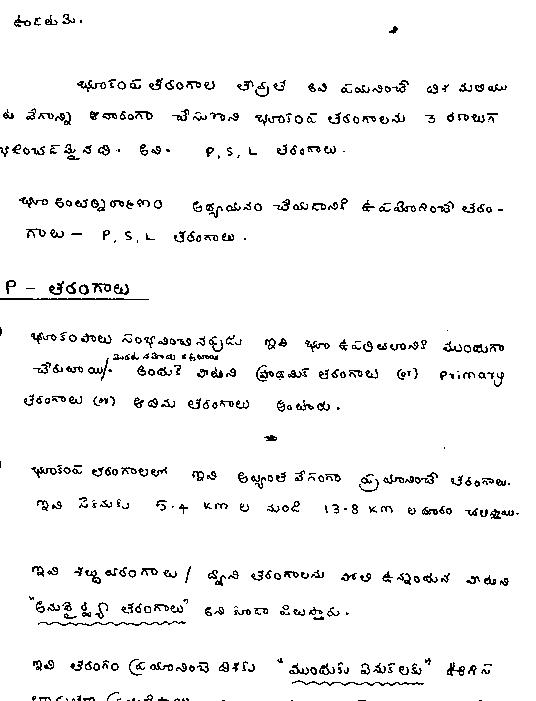 ఉండటమే.
భూకంప తరంగాల తీవ్రత అవి పయనించే దిశ మరియు
వేగాన్ని ఆధారంగా చేసుకొని భూకంప తరంగాలను 3 రకాలుగా
అవి. P, S, L తరంగాలు.
భూ అంతర్నిర్మాణం అధ్యయనం చేయడానికి ఉపయోగించే తరం-
గాలు - P, S, L తరంగాలు.
P - తరంగాలు
భూకంపాలు సంభవించినప్పుడు ఇవి భూ ఉపరితలానికి ముందుగా
చేరుతాయి. అందుకే వాటిని ప్రాథమిక తరంగాలు (or) Primary
తరంగాలు (or) ఆదిమ తరంగాలు అంటారు.
భూకంప తరంగాలలో ఇవి అత్యంత వేగంగా ప్రయాణించే తరంగాలు.
ఇవి సెకనుకు 5.4 KM ల నుండి 13.8 KM ల దూరం
ఇవి శబ్ద తరంగాలు / ధ్వని తరంగాలను పోలి ఉన్నందున వాటిని
"అనుదైర్ఘ్య తరంగాలు" అని కూడా పిలుస్తారు.
ఇవి తరంగం ప్రయాణించే దిశకు "ముందుకు వెనుకలకు"